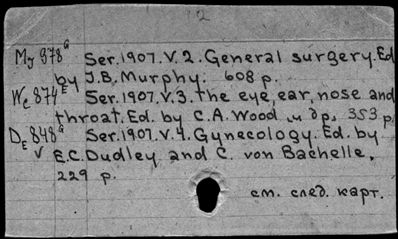 2
Му 878ᴳ Ser. 1907. V. 2. General surgery. Ed.
by J.B. Murphy. 608 p.
We 874ᴱ Ser. 1907. V. 3. The eye, ear, nose and
throat. Ed. by C.A. Wood и др. 353 p.
DE 848ᴳ Ser. 1907. V. 4. Gynecology. Ed. by
v E.C. Dudley and C. von Bachelle.
229 p.
см. след. карт.